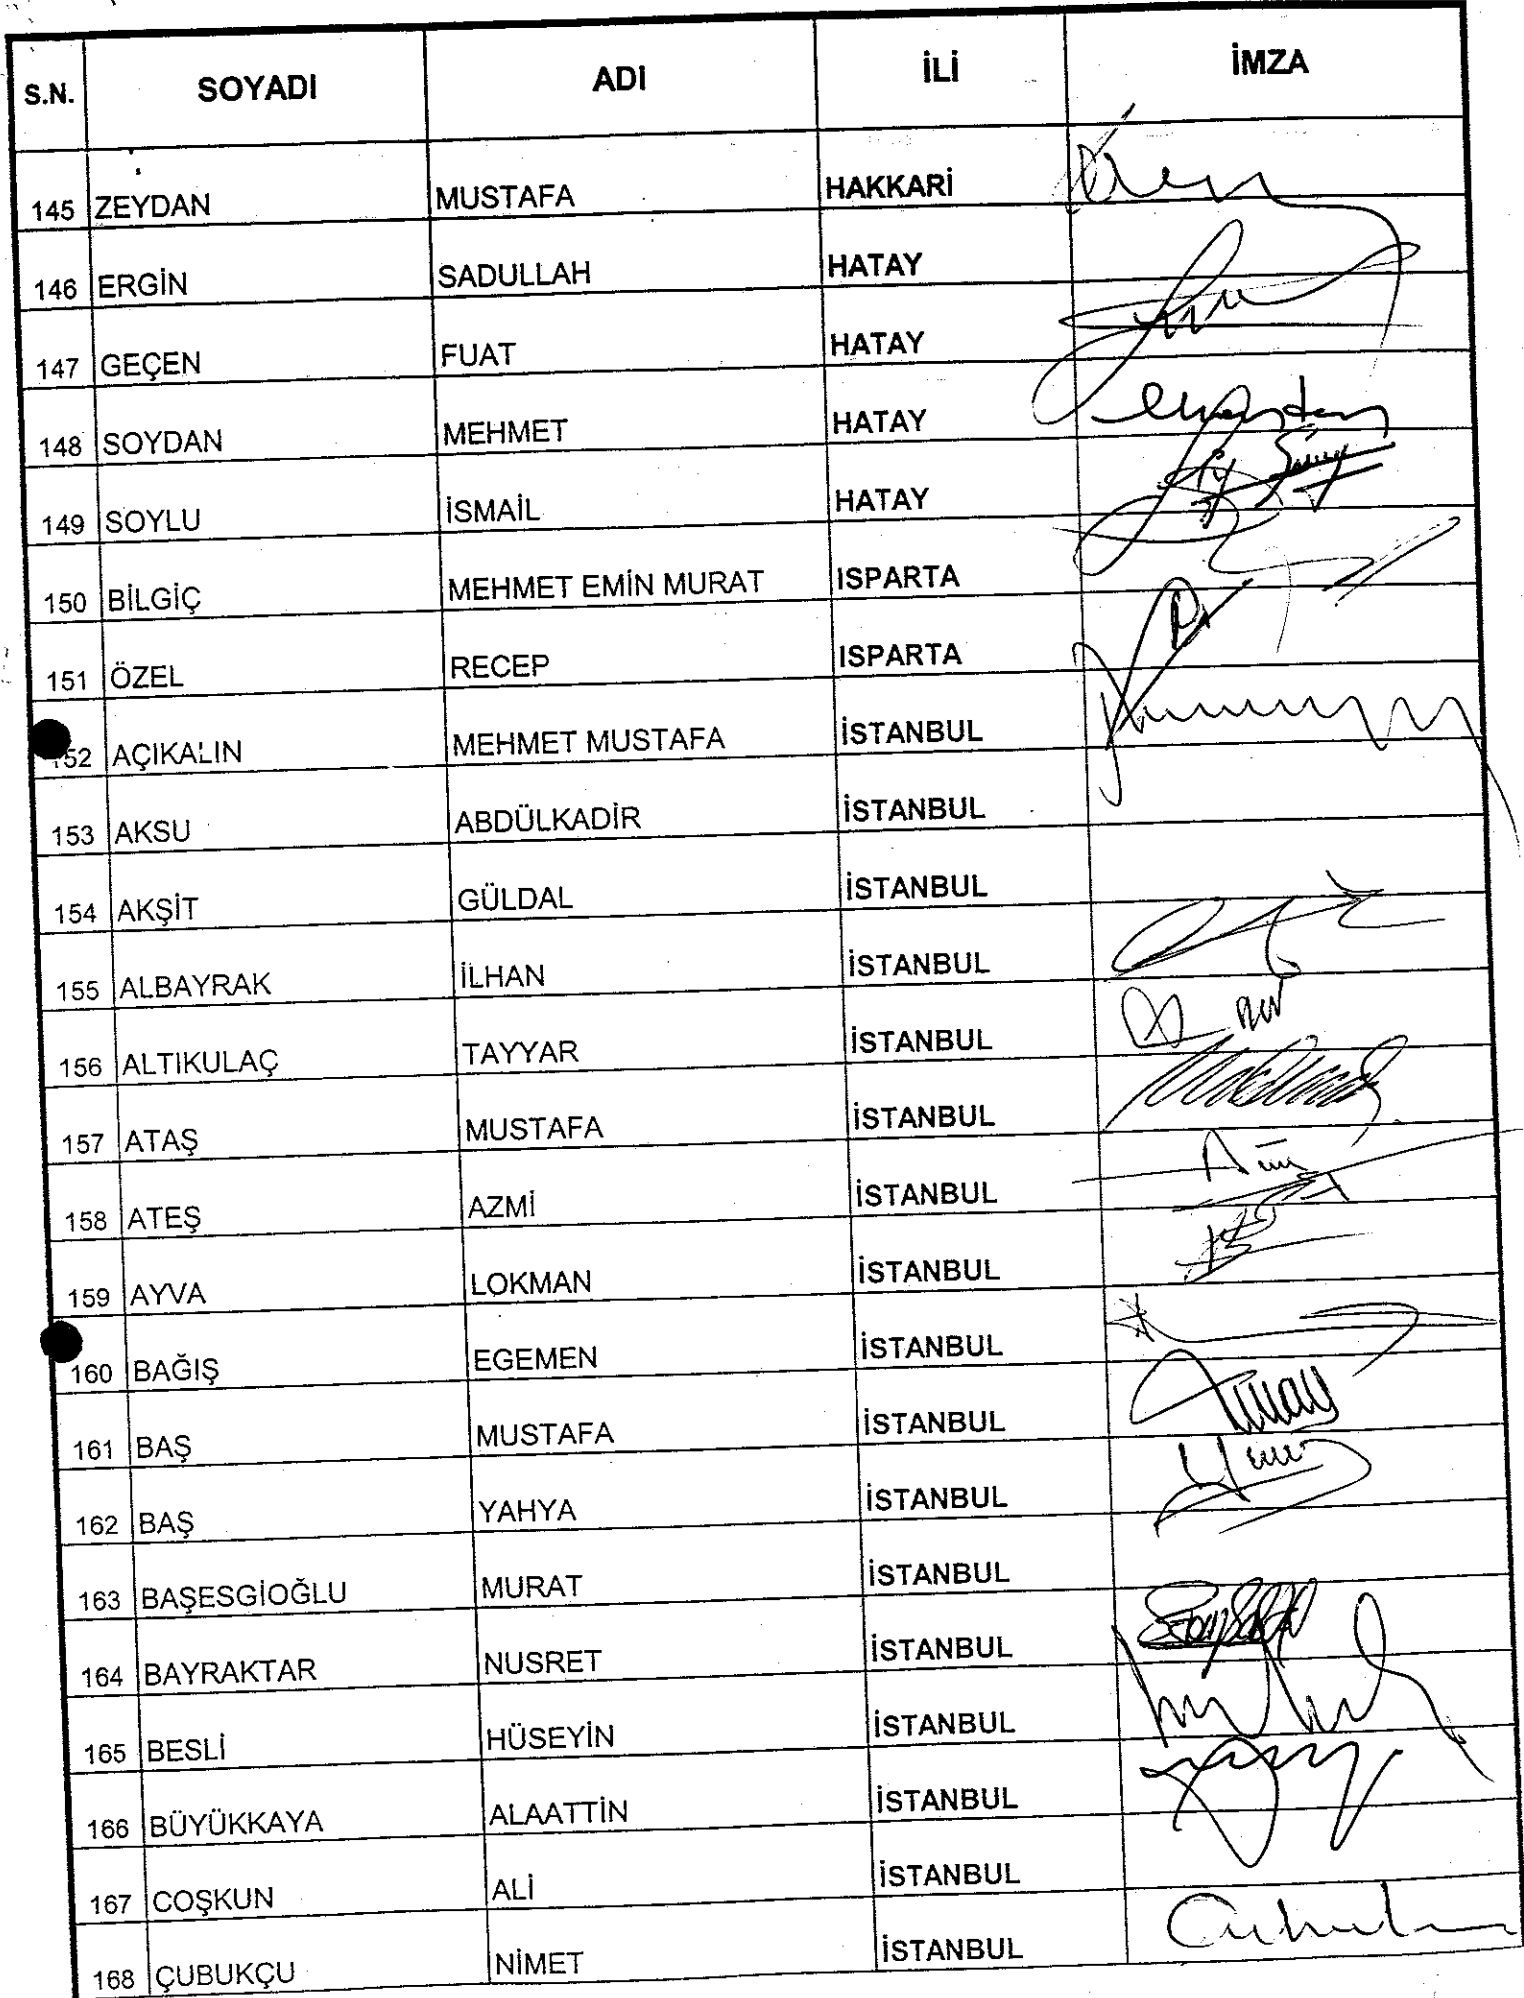 S.N. SOYADI ADI İLİ İMZA
145 ZEYDAN MUSTAFA HAKKARİ
146 ERGİN SADULLAH HATAY
147 GEÇEN FUAT HATAY
148 SOYDAN MEHMET HATAY
149 SOYLU İSMAİL HATAY
150 BİLGİÇ MEHMET EMİN MURAT ISPARTA
151 ÖZEL RECEP ISPARTA
152 AÇIKALIN MEHMET MUSTAFA İSTANBUL
153 AKSU ABDÜLKADİR İSTANBUL
154 AKŞİT GÜLDAL İSTANBUL
155 ALBAYRAK İLHAN İSTANBUL
156 ALTIKULAÇ TAYYAR İSTANBUL
157 ATAŞ MUSTAFA İSTANBUL
158 ATEŞ AZMİ İSTANBUL
159 AYVA LOKMAN İSTANBUL
160 BAĞIŞ EGEMEN İSTANBUL
161 BAŞ MUSTAFA İSTANBUL
162 BAŞ YAHYA İSTANBUL
163 BAŞESGİOĞLU MURAT İSTANBUL
164 BAYRAKTAR NUSRET İSTANBUL
165 BESLİ HÜSEYİN İSTANBUL
166 BÜYÜKKAYA ALAATTİN İSTANBUL
167 COŞKUN ALİ İSTANBUL
168 ÇUBUKÇU NİMET İSTANBUL